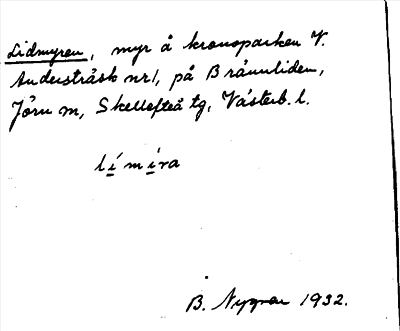 Lidmyren, myr å kronoparken V.
Anderstråsk nr 1, på Brännliden,
Jörn sn, Skellefteå tg, Västerb. l.
lí̱mi̱ra
B. Nygren 1932.